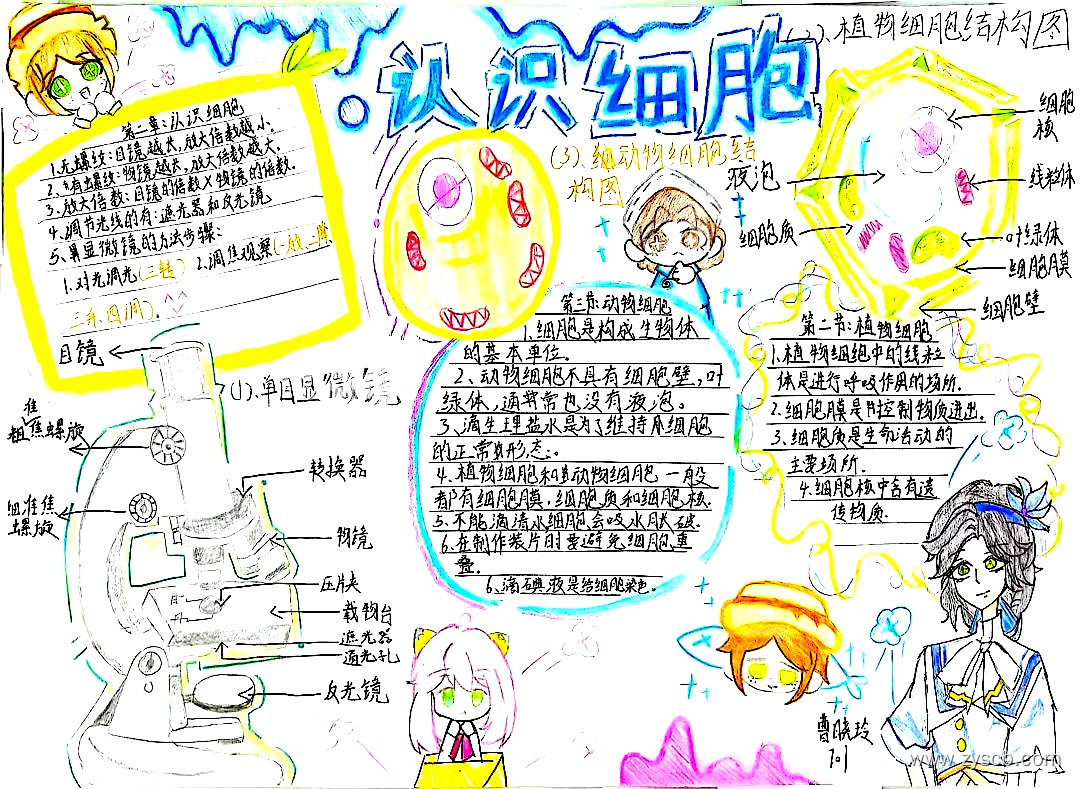 认识细胞
第二章:认识细胞
1.无螺纹:目镜越长,放大倍数越小.
2.有螺纹:物镜越长,放大倍数越大.
3.放大倍数:目镜的倍数×物镜的倍数.
4.调节光线的有:遮光器和反光镜
5.显微镜的方法步骤:
1.对光调光(三转) 2.调焦观察(一放二
三升四调).
(1).单目显微镜
目镜
粗准焦螺旋
细准焦
螺旋
转换器
物镜
压片夹
载物台
遮光器
通光孔
反光镜
(3).动物细胞结
构图
第三节:动物细胞
1.细胞是构成生物体
的基本单位。
2、动物细胞不具有细胞壁,叶
绿体,通常也没有液泡。
3、滴生理盐水是为了维持细胞
的正常形态.
4.植物细胞和动物细胞一般
都有细胞膜.细胞质和细胞核.
5.不能滴清水细胞会吸水胀破.
6.在制作装片时要避免细胞重
叠.
6.滴碘液是给细胞染色.
(2)、植物细胞结构图
细胞
核
液泡
线粒体
细胞质
叶绿体
细胞膜
细胞壁
第二节:植物细胞
1.植物细胞中的线粒
体是进行呼吸作用的场所.
2.细胞膜是控制物质进出.
3.细胞质是生命活动的
主要场所.
4.细胞核中含有遗
传物质.
曹晓玲
701
www.zyscp.com